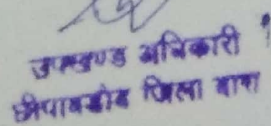 उपखण्ड अधिकारी
छीपाबडौद जिला बारां